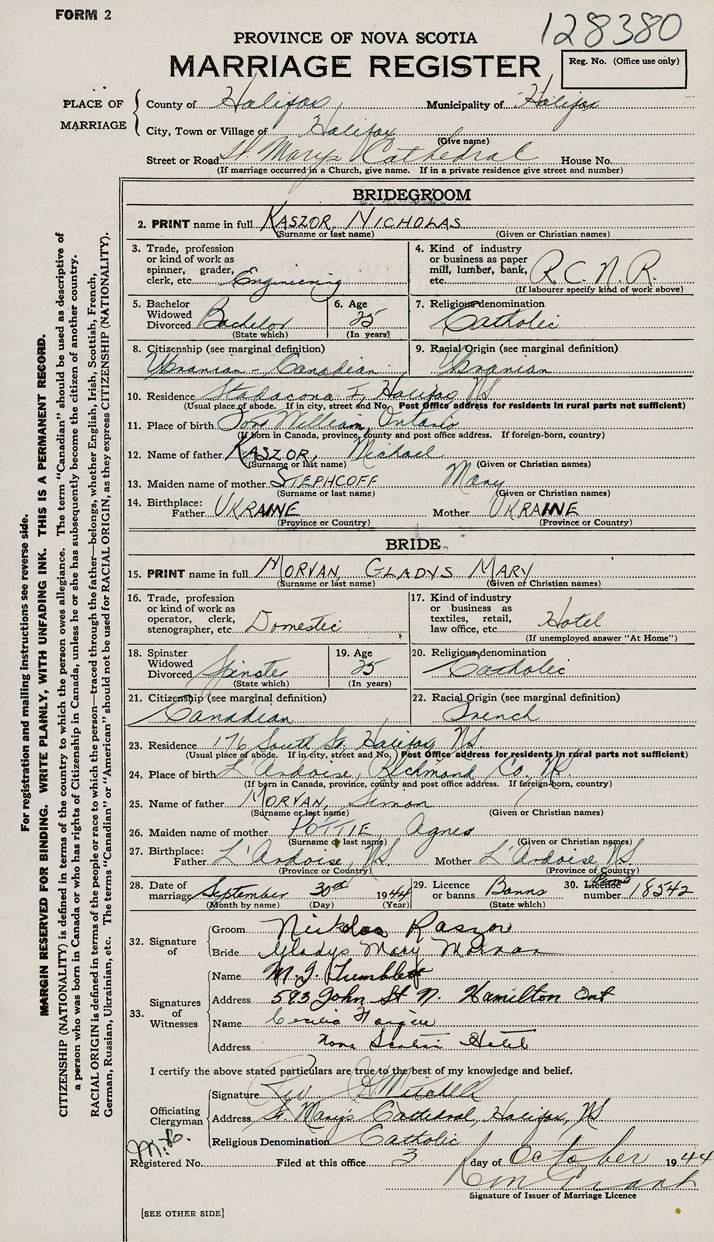 FORM 2
128380
PROVINCE OF NOVA SCOTIA
MARRIAGE REGISTER
Reg. No. (Office use only)
PLACE OF MARRIAGE
County of Halifax, Municipality of Halifax
City, Town or Village of Halifax
(Give name)
Street or Road St. Mary's Cathedral House No.
(If marriage occurred in a Church, give name. If in a private residence give street and number)
BRIDEGROOM
2. PRINT name in full KASZOR, NICHOLAS
(Surname or last name) (Given or Christian names)
3. Trade, profession or kind of work as spinner, grader, clerk, etc. Engineering
4. Kind of industry or business as paper mill, lumber, bank, etc. R.C.N.R.
(If labourer specify kind of work above)
5. Bachelor Widowed Divorced Bachelor
(State which)
6. Age 25
(In years)
7. Religious denomination Catholic
8. Citizenship (see marginal definition) Ukranian - Canadian
9. Racial Origin (see marginal definition) Ukranian
10. Residence Stadacona I, Halifax NS
(Usual place of abode. If in city, street and No. Post Office address for residents in rural parts not sufficient)
11. Place of birth Fort William, Ontario
(If born in Canada, province, county and post office address. If foreign-born, country)
12. Name of father KASZOR, Michael
(Surname or last name) (Given or Christian names)
13. Maiden name of mother STEPHCOFF Mary
(Surname or last name) (Given or Christian names)
14. Birthplace: Father UKRAINE Mother UKRAINE
(Province or Country) (Province or Country)
BRIDE
15. PRINT name in full MORVAN, GLADYS MARY
(Surname or last name) (Given or Christian names)
16. Trade, profession or kind of work as operator, clerk, stenographer, etc. Domestic
17. Kind of industry or business as textiles, retail, law office, etc. Hotel
(If unemployed answer "At Home")
18. Spinster Widowed Divorced Spinster
(State which)
19. Age 25
(In years)
20. Religious denomination Catholic
21. Citizenship (see marginal definition) Canadian
22. Racial Origin (see marginal definition) French
23. Residence 176 South St, Halifax NS
(Usual place of abode. If in city, street and No. Post Office address for residents in rural parts not sufficient)
24. Place of birth L'Ardoise, Richmond Co. NS
(If born in Canada, province, county and post office address. If foreign-born, country)
25. Name of father MORVAN, Simon
(Surname or last name) (Given or Christian names)
26. Maiden name of mother POTTIE, Agnes
(Surname or last name) (Given or Christian names)
27. Birthplace: Father L'Ardoise, NS Mother L'Ardoise, NS
(Province or Country) (Province of Country)
28. Date of marriage September 30th 1944
(Month by name) (Day) (Year)
29. Licence or banns Banns
(State which)
30. Licence number 18542
32. Signature of
Groom Nickolas Kaszor
Bride Gladys Mary Morvan
33. Signatures of Witnesses
Name M. J.
Address 593 John St N. Hamilton Ont
Name Cecilia
Address Nova Scotian Hotel
I certify the above stated particulars are true to the best of my knowledge and belief.
Officiating Clergyman
Signature Rev. Mitchell
Address St. Mary's Cathedral, Halifax, NS
Religious Denomination Catholic
Registered No. Filed at this office 3 day of October 1944
Signature of Issuer of Marriage Licence
[SEE OTHER SIDE]
For registration and mailing instructions see reverse side.
MARGIN RESERVED FOR BINDING. WRITE PLAINLY, WITH UNFADING INK. THIS IS A PERMANENT RECORD.
CITIZENSHIP (NATIONALITY) is defined in terms of the country to which the person owes allegiance. The term "Canadian" should be used as descriptive of
a person who was born in Canada or who has rights of Citizenship in Canada, unless he or she has subsequently become the citizen of another country.
RACIAL ORIGIN is defined in terms of the people or race to which the person—traced through the father—belongs, whether English, Irish, Scottish, French,
German, Russian, Ukrainian, etc. The terms "Canadian" or "American" should not be used for RACIAL ORIGIN, as they express CITIZENSHIP (NATIONALITY).